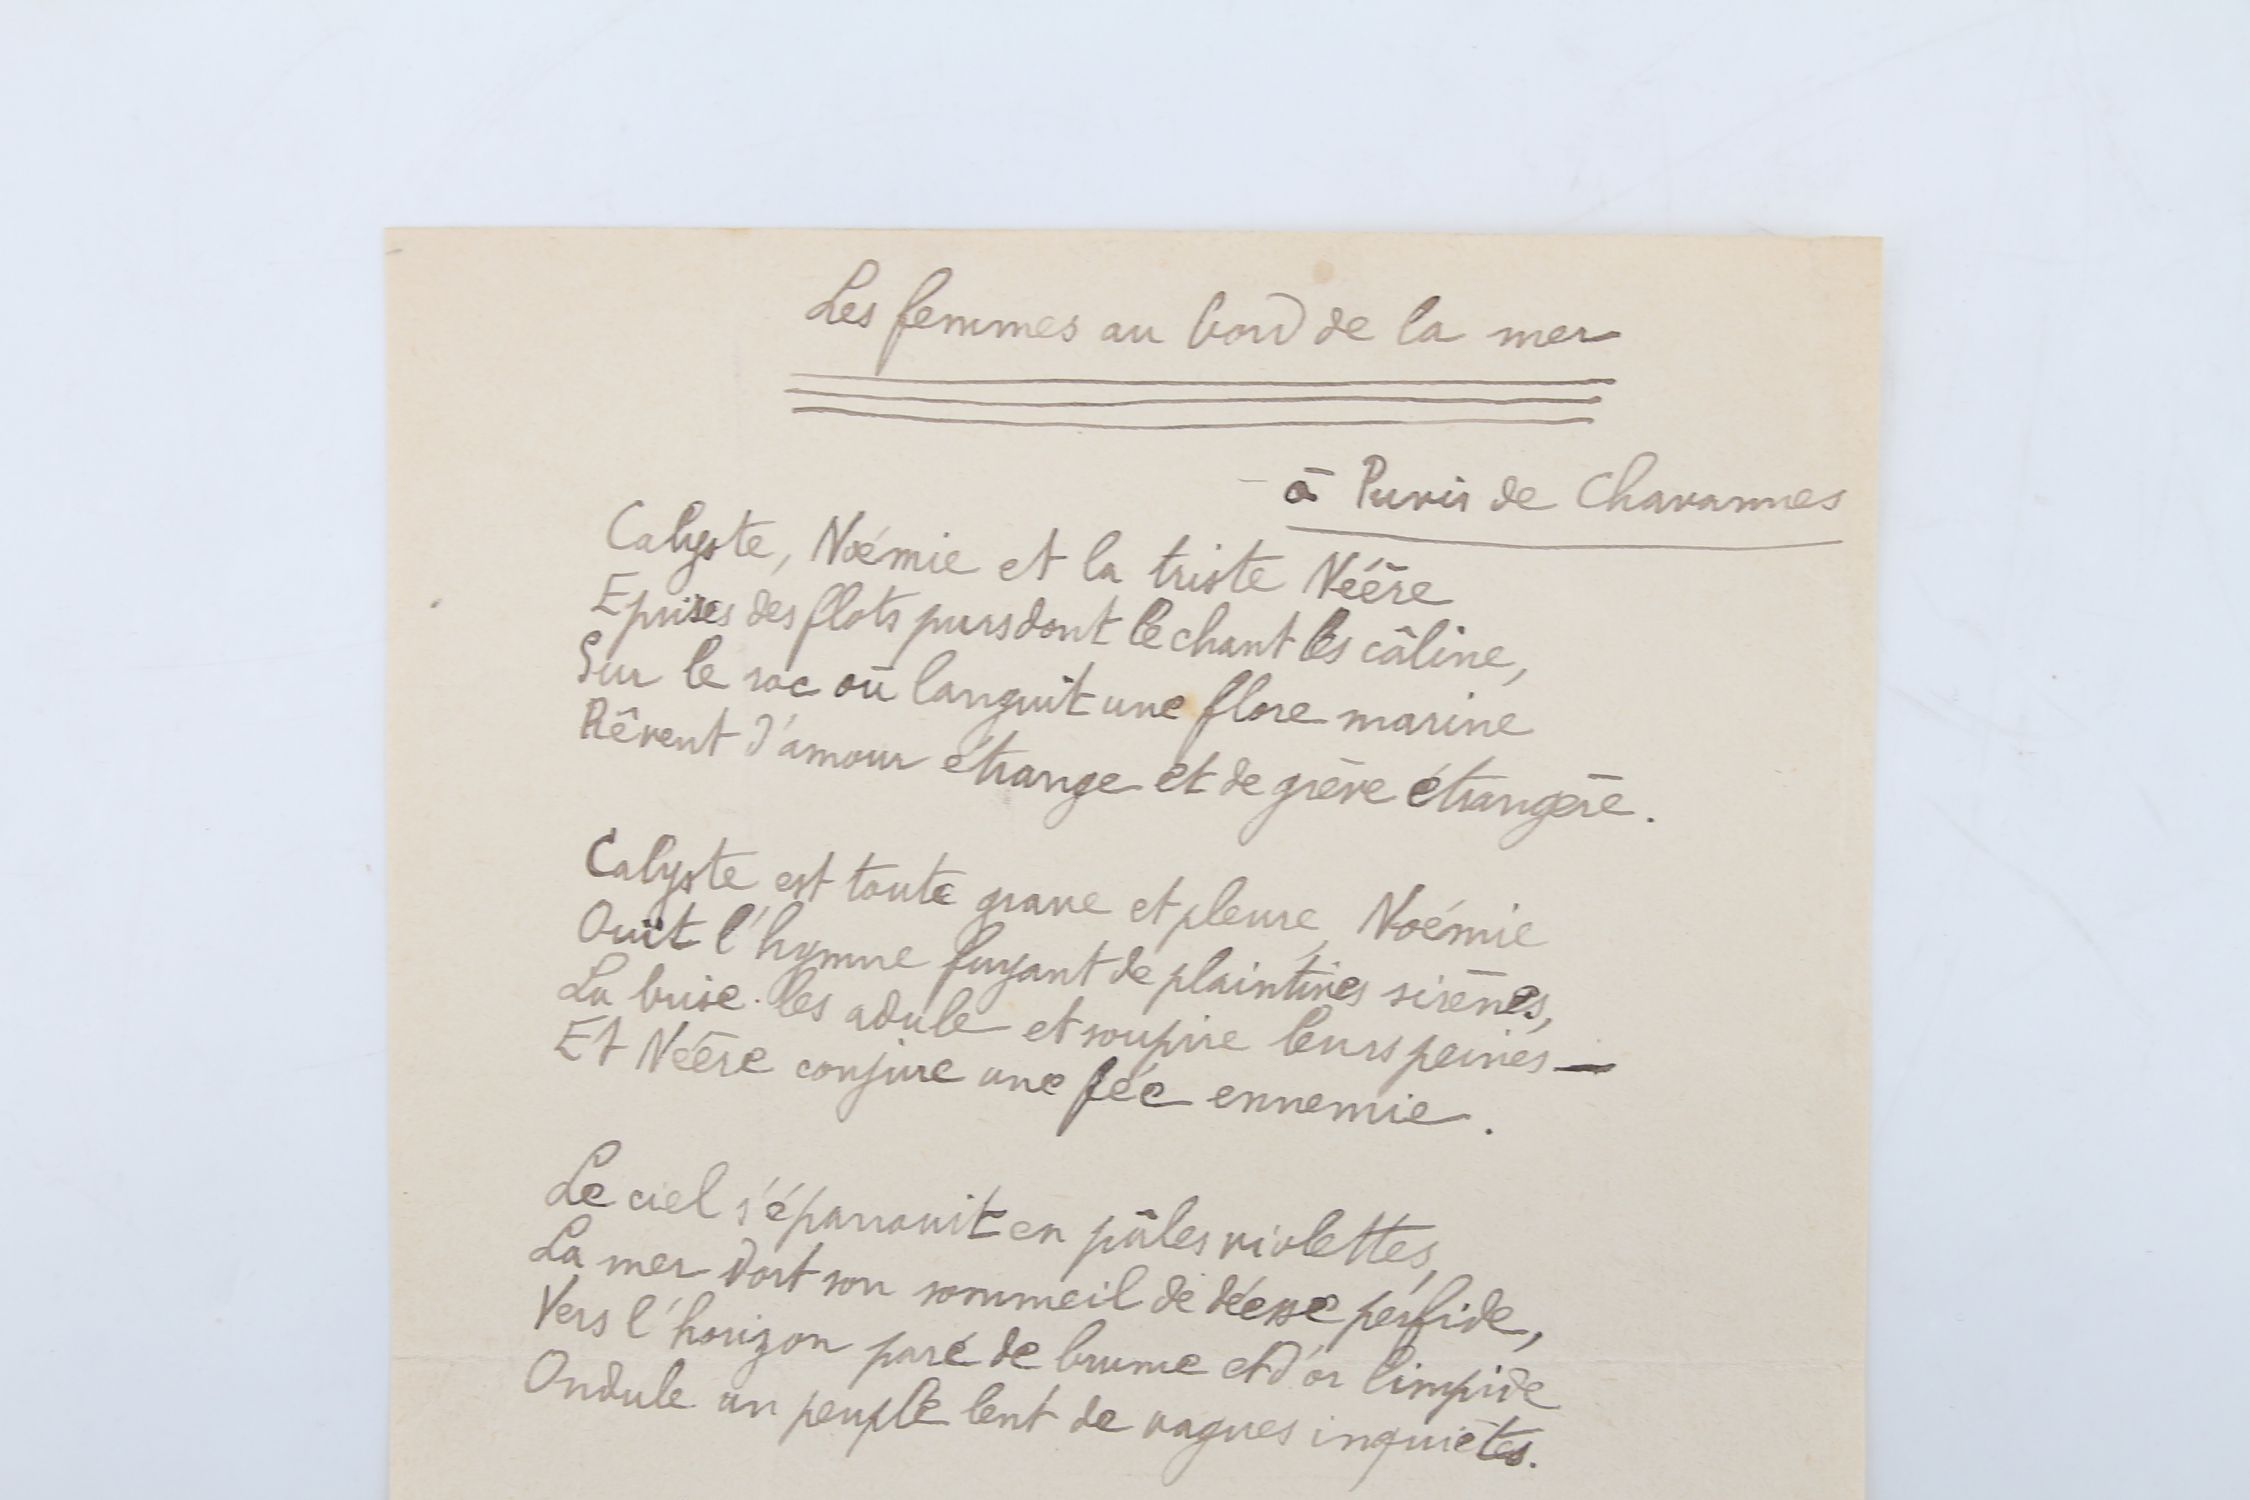 Les femmes au bord de la mer
- à Puvis de Chavannes
Calyste, Noémie et la triste Néère
Eprises des flots purs dont le chant les câline,
Sur le roc où languit une flore marine
Rêvent d'amour étrange et de grève étrangère.
Calyste est toute grave et pleure, Noémie
Ouït l'hymne fuyant de plaintives sirènes,
La brise les adule et soupire leurs peines —
Et Néère conjure une fée ennemie.
Le ciel s'épanouit en pâles violettes,
La mer dort son sommeil de déesse perfide,
Vers l'horizon paré de brume et d'or limpide
Ondule un peuple lent de vagues inquiètes.